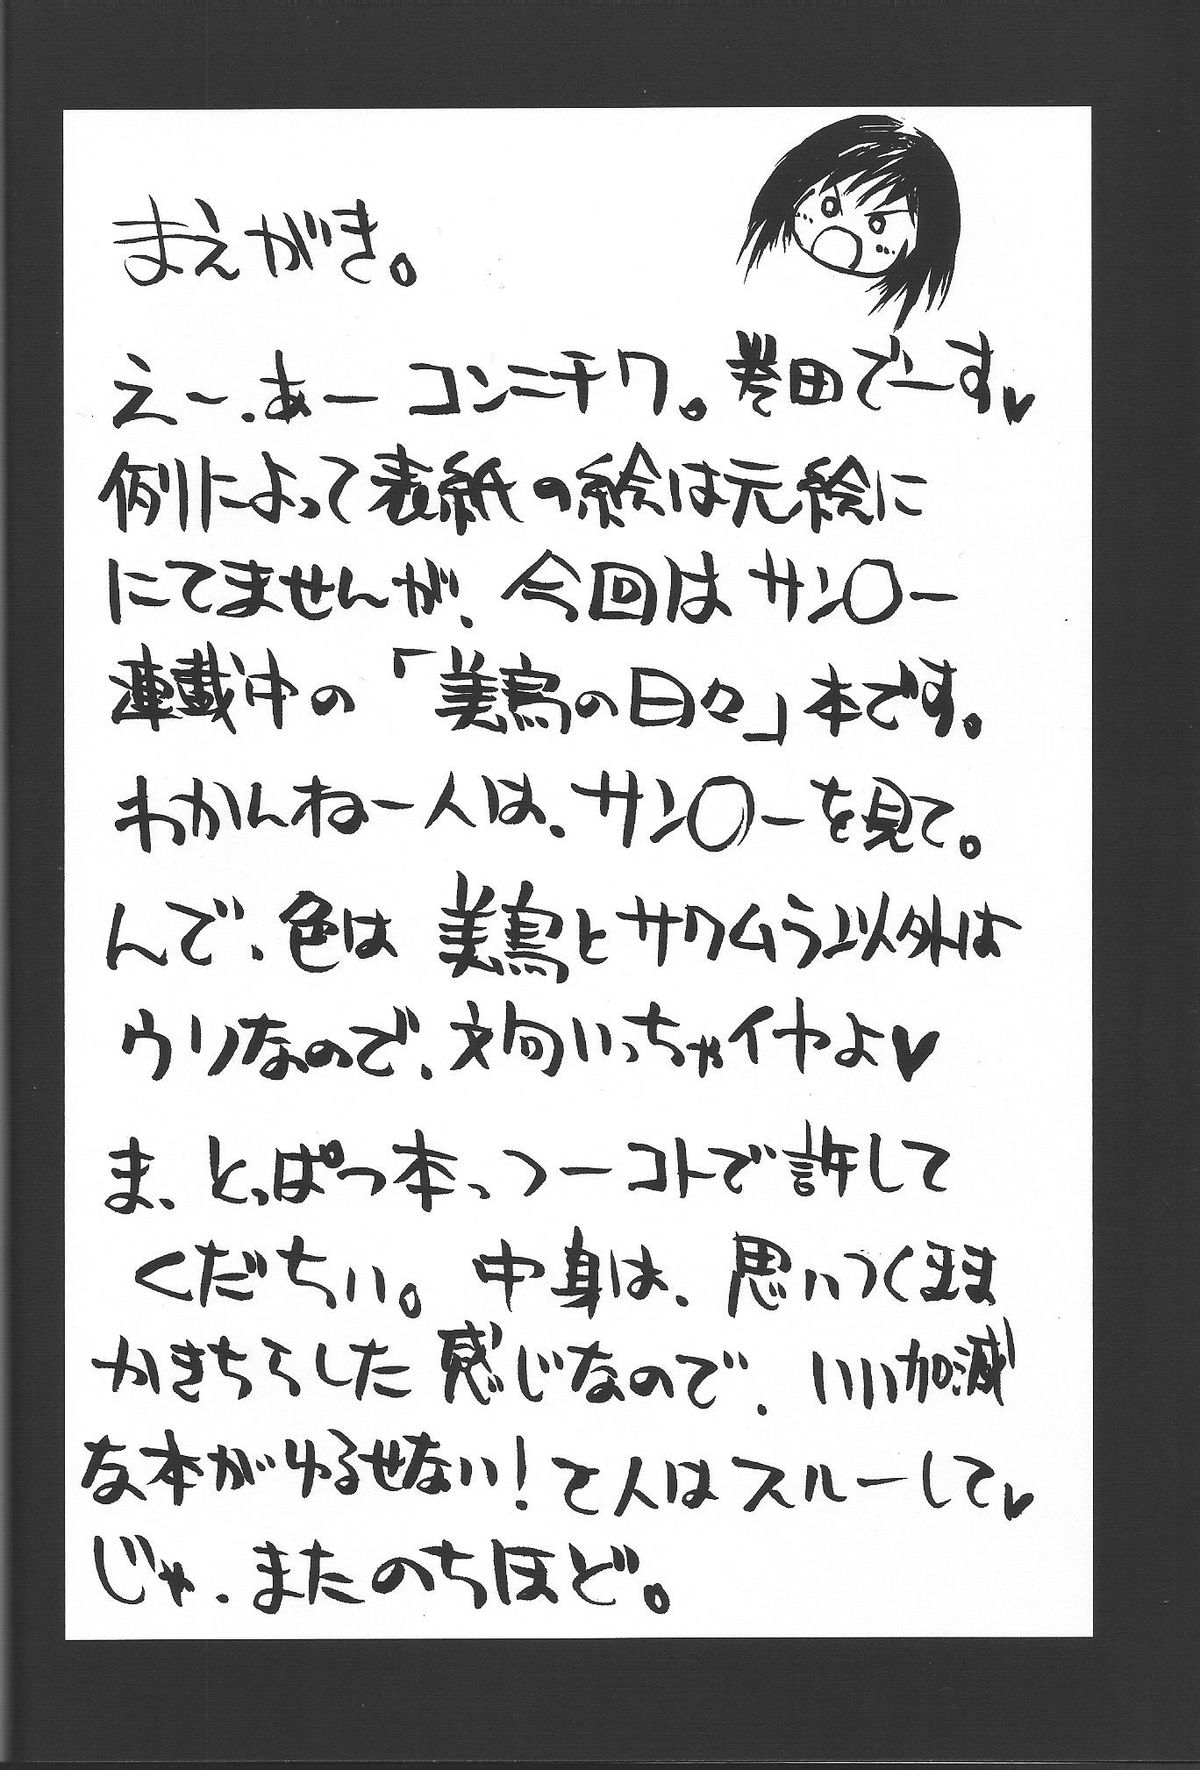 まえがき。
えー、あー コンニチワ。巻田でーす♥
例によって表紙の絵は元絵に
にてませんが、今回はサン〇ー
連載中の「美鳥の日々」本です。
わかんねー人は、サン〇ーを見て。
んで、色は美鳥とサクムラ以外は
ウリなので、文句いっちゃイヤよ♥
ま、とっぱつ本っつーコトで許して
くだちい。中身は、思いつくまま
かきちらした感じなので、いい加減
な本がゆるせない！て人はスルーして♥
じゃ、またのちほど。